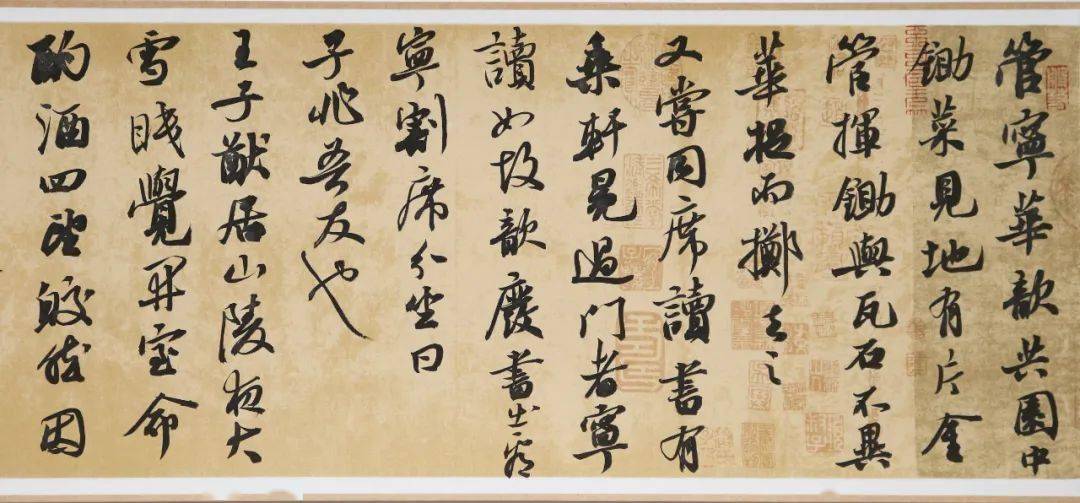 管寧華歆共園中
鋤菜見地有片金
管揮鋤與瓦石不異
華捉而擲去之
又嘗同席讀書有
乘軒冕過门者寧
讀如故歆廢書出看
寧割席分坐曰
子非吾友也
王子猷居山陵夜大
雪眠覺開室命
酌酒四望皎然因